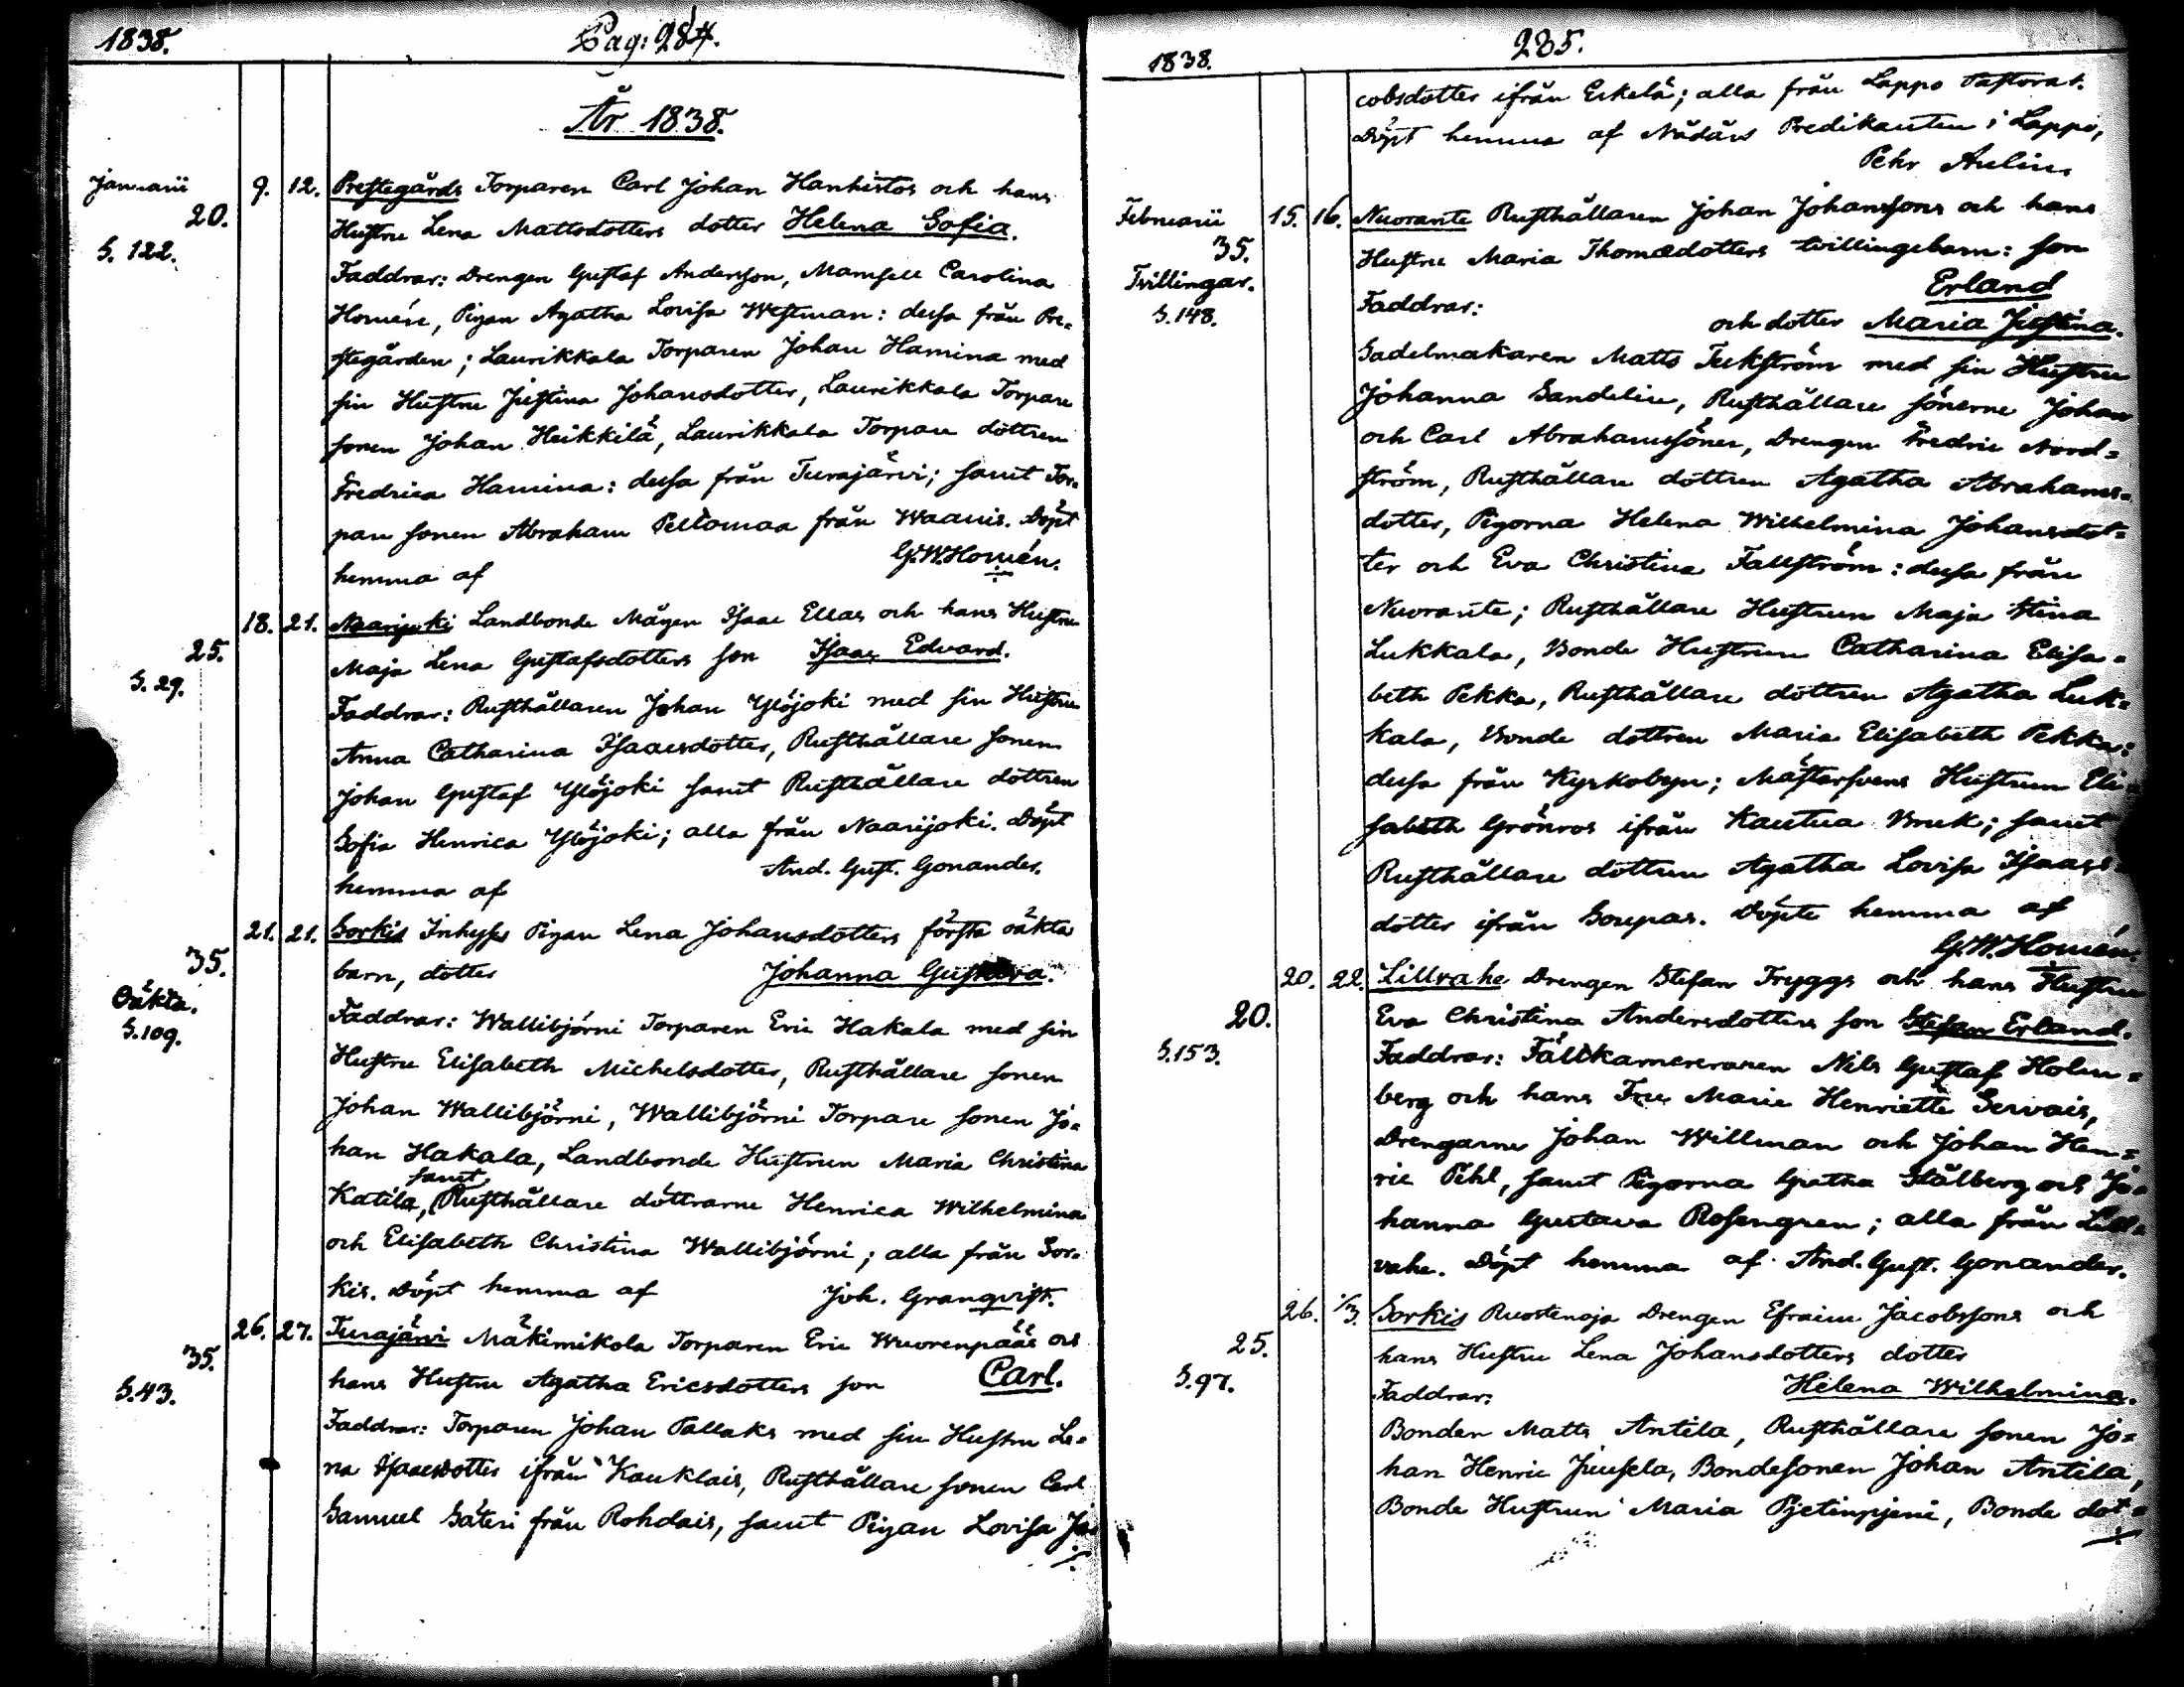 1838. Pag: 284.
År 1838.
Januarii 9. 12. Prestegårds Torparen Carl Johan Hanhistos och hans
20. Hustru Lena Mattsdotters dotter Helena Sofia.
S. 122. Faddrar: Drengen Gustaf Andersson, Mamsell Carolina
Homén, Pigan Agatha Lovisa Westman: dessa från Pre-
stegården; Laurikkala Torparen Johan Hamina med
sin Hustru Justina Johansdotter, Laurikkala Torpare
sonen Johan Heikkilä, Laurikkala Torpare dottren
Fredrica Hamina: dessa från Turajärvi; samt Tor-
pare sonen Abraham Peltomaa från Waanis. Döpt
hemma af G.W. Homén.
18. 21. Naarijoki Landbonde Mågen Isaac Ellas och hans Hustru
25. Maja Lena Gustafsdotters son Isaac Edvard.
S. 29. Faddrar: Rusthållaren Johan Ylöjoki med sin Hustru
Anna Catharina Isaacsdotter, Rusthållare sonen
Johan Gustaf Ylöjoki samt Rusthållare dottren
Sofia Henrica Ylöjoki; alla från Naarijoki. Döpt
hemma af And. Gust. Gonander.
21. 21. Sorkis Inhyses Pigan Lena Johansdotters första oäkta
35. barn, dotter Johanna Gustava.
Oäkta. Faddrar: Wallibjörni Torparen Eric Hakala med sin
S. 109. Hustru Elisabeth Michelsdotter, Rusthållare sonen
Johan Wallibjörni, Wallibjörni Torpare sonen Jo-
han Hakala, Landbonde Hustrun Maria Christina
Katila, samt Rusthållare döttrarne Henrica Wilhelmina
och Elisabeth Christina Wallibjörni; alla från Sor-
kis. Döpt hemma af Joh. Granqvist.
26. 27. Turajärvi Mäkimikola Torparen Eric Wuorenpääs och
35. hans Hustru Agatha Ericsdotters son Carl.
S. 43. Faddrar: Torparen Johan Pallaks med sin Hustru Le-
na Isaacsdotter ifrån Kauklais, Rusthållare sonen Carl
Samuel Säteri från Rohdais, samt Pigan Lovisa Ja-
1838. 285.
cobsdotter ifrån Eskelä; alla från Lappo Pastorat.
Döpt hemma af Nådårs Predikanten i Lappo,
Pehr Aulin.
Februarii 15. 16. Nuoranté Rusthållaren Johan Johanssons och hans
35. Hustru Maria Thomædotters tvillingebarn: son
Tvillingar. Erland
S. 148. Faddrar: och dotter Maria Justina.
Sadelmakaren Matts Tuckström med sin Hustru
Johanna Sandelin, Rusthållare sönerne Johan
och Carl Abrahamssöner, Drengen Fredric Nord-
ström, Rusthållare dottren Agatha Abrahams-
dotter, Pigorna Helena Wilhelmina Johansdot-
ter och Eva Christina Fallström: dessa från
Nuoranté; Rusthållare Hustrun Maja Stina
Lukkala, Bonde Hustrun Catharina Elisa-
beth Pekka, Rusthållare dottren Agatha Luk-
kala, Bonde dottren Maria Elisabeth Pekka:
dessa från Kyrkobyn; Mästersvens Hustrun Eli-
sabeth Grönros ifrån Kautua Bruk; samt
Rusthållare dottren Agatha Lovisa Isaacs-
dotter ifrån Sorpas. Döpte hemma af
G.W. Homén.
20. 22. Lillrahe Drengen Stefan Tryggs och hans Hustru
20. Eva Christina Andersdotters son Stefan Erland.
S. 153. Faddrar: Fältkamereraren Nils Gustaf Holm-
berg och hans Fru Marie Henriette Servais,
Drengarne Johan Willman och Johan Hen-
ric Pihl, samt Pigorna Gretha Stålberg och Jo-
hanna Gustava Rosengren; alla från Lill-
rahe. Döpt hemma af And. Gust. Gonander.
26. 1/3. Sorkis Ruostenoja Drengen Efraim Jacobssons och
25. hans Hustru Lena Johansdotters dotter
S. 97. Faddrar: Helena Wilhelmina.
Bonden Matts Antila, Rusthållare sonen Jo-
han Henric Juusela, Bondesonen Johan Antila,
Bonde Hustrun Maria Pjetinpjeni, Bonde dot-